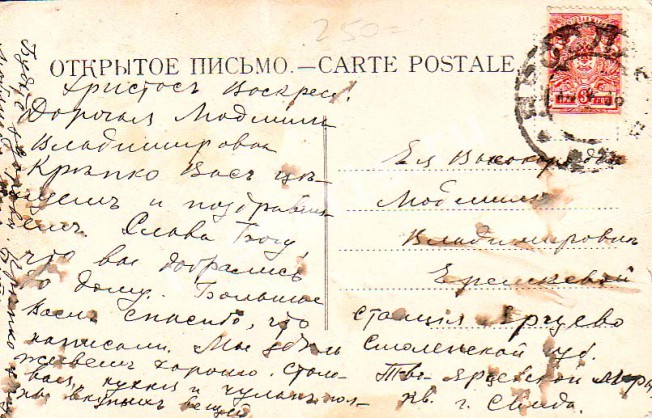 250=
ОТКРЫТОЕ ПИСЬМО.—CARTE POSTALE.
Христосъ Воскресъ!
Дорогая Людмила
Владимировна
Крѣпко Васъ цѣ-
луемъ и поздравля
емъ. Слава Богу,
что вы добрались
до дому. Большое
Вамъ спасибо, что
написали. Мы здѣсь
живемъ хорошо. Столо
вая, кухня и чуланъ пол-
ны вкусныхъ вещей
Ея Высокородію
Людмилѣ
Владимировнѣ
Ерешкевой
станція Ярцево
Смоленской губ.
Тв. Ярцевской Ману
кв. г.